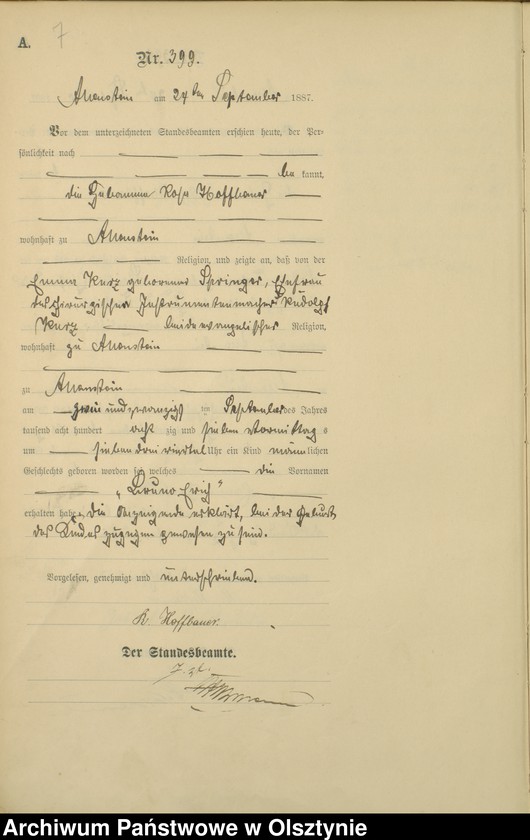 A.
7
Nr. 399.
Allenstein am 24ten September 1887.
Vor dem unterzeichneten Standesbeamten erschien heute, der Per-
sönlichkeit nach
be kannt,
die Hebamme Rosa Hoffbauer
wohnhaft zu Allenstein
Religion, und zeigte an, daß von der
Emma Kurz geborener Springer, Ehefrau
des chirurgischen Instrumentenmachers Rudolph
Kurz beide evangelischer Religion,
wohnhaft zu Allenstein
zu Allenstein
am zwei und zwanzigsten September des Jahres
tausend acht hundert acht zig und sieben Vormittag s
um sieben drei viertel Uhr ein Kind männ lichen
Geschlechts geboren worden sei, welches die Vornamen
„Bruno Erich"
erhalten habe. Die Anzeigende erklärt, bei der Geburt
des Kindes zugegen gewesen zu sein.
Vorgelesen, genehmigt und unterschrieben.
R. Hoffbauer.
Der Standesbeamte.
Archiwum Państwowe w Olsztynie